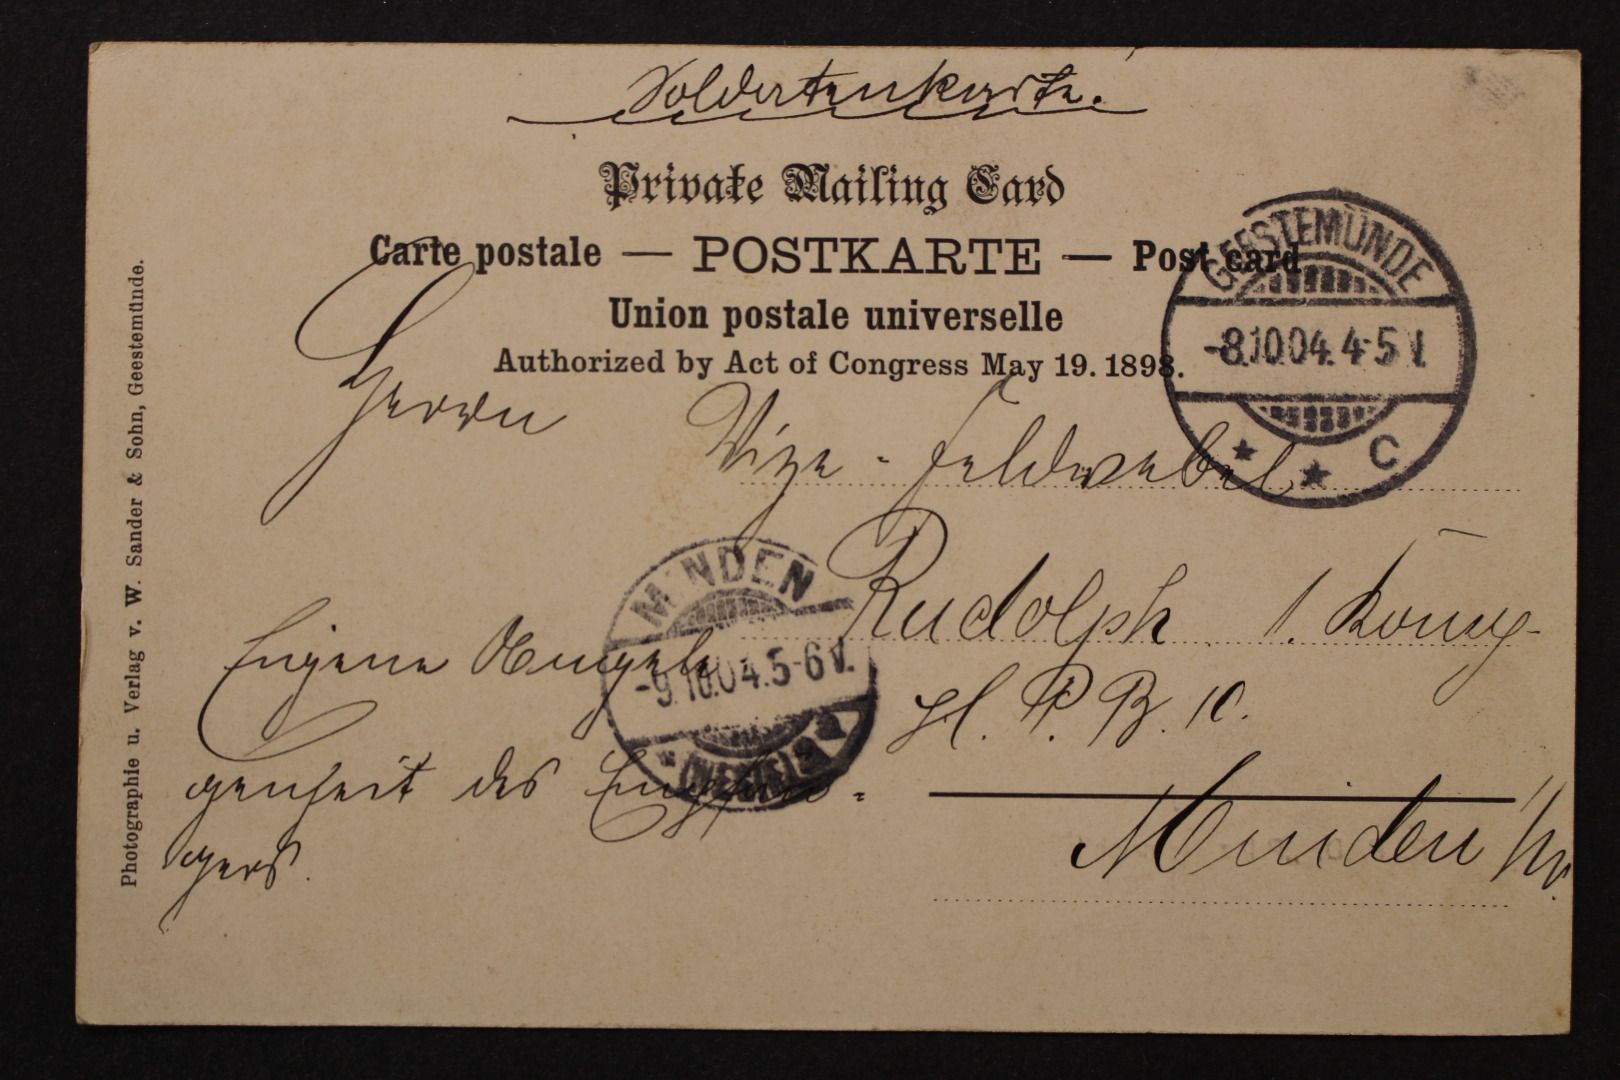 Soldatenkarte.
Private Mailing Card
Carte postale — POSTKARTE — Post card
Union postale universelle
Authorized by Act of Congress May 19. 1898.
GEESTEMÜNDE
-8.10.04. 4-5 V.
* * C
Herrn
Vize-Feldwebel
Rudolph
H. P. B. 10.
Minden i/W.
MINDEN
-9.10.04. 5-6 V.
* (WESTF) *
Eigene Angele-
genheit des Empfän-
gers.
Photographie u. Verlag v. W. Sander & Sohn, Geestemünde.